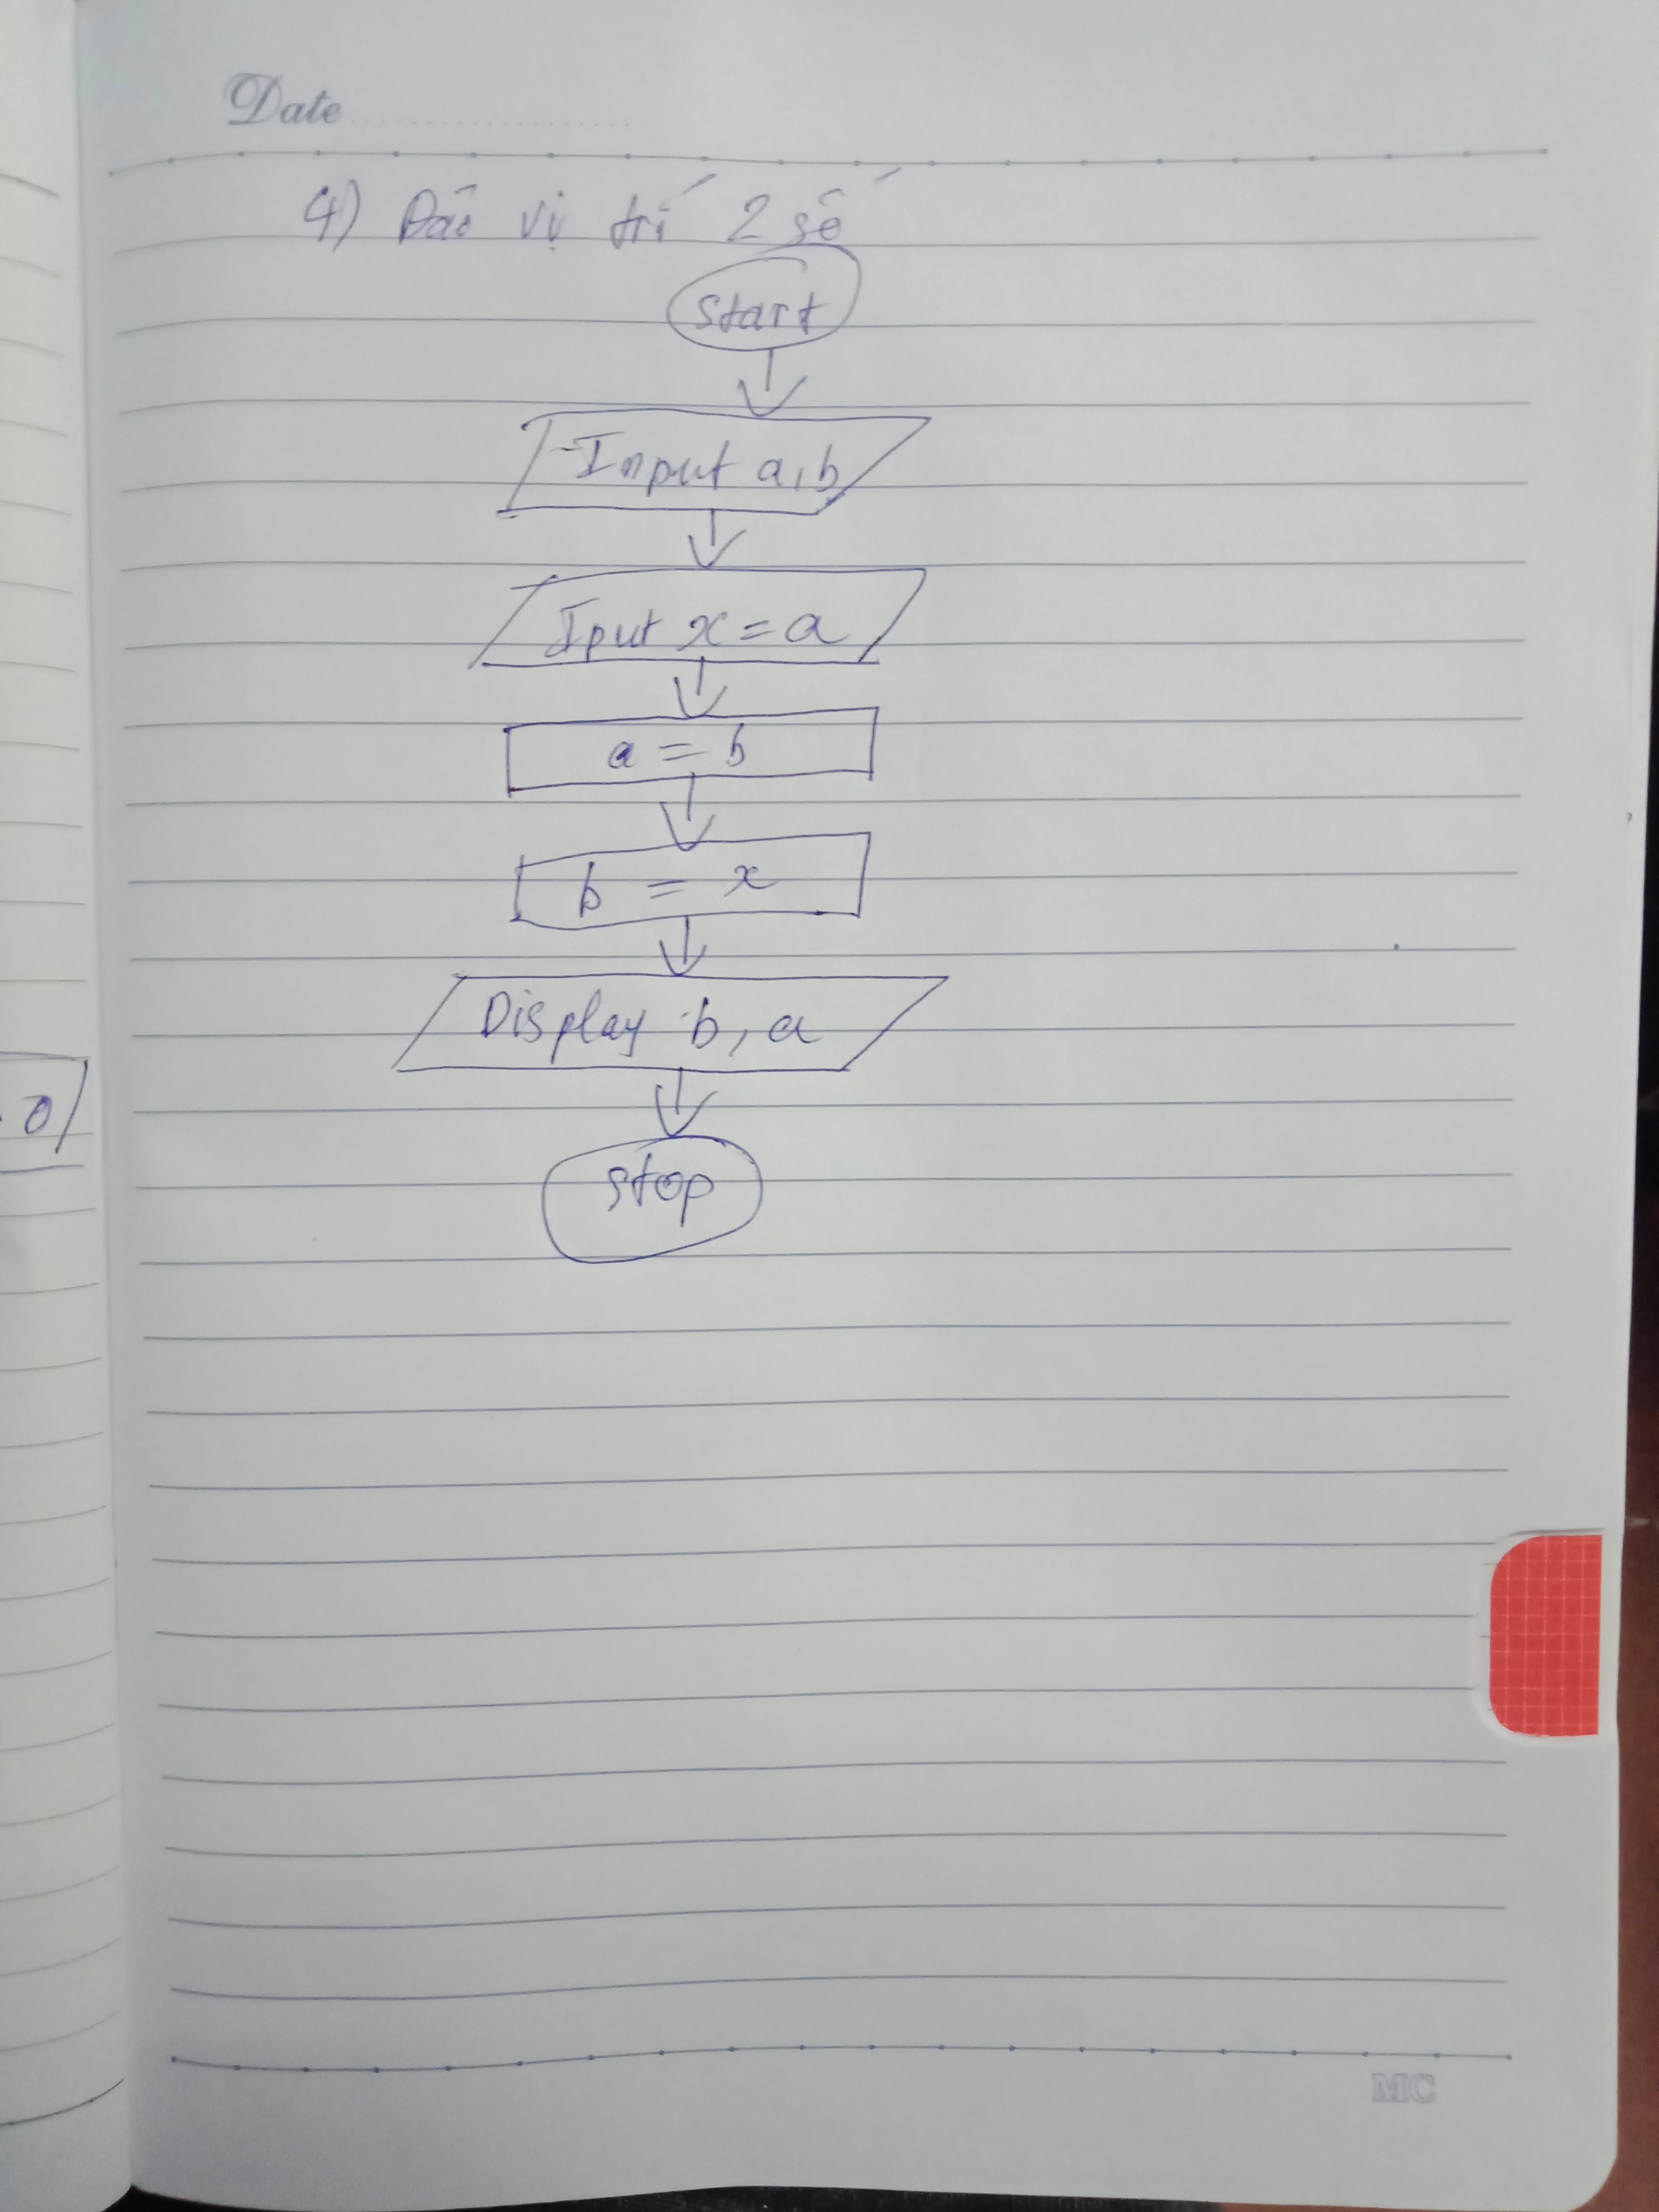 Date
4) Đảo vị trí 2 số
Start
-Input a,b
Iput x = a
a = b
b = x
Display b, a
Stop
0
MC